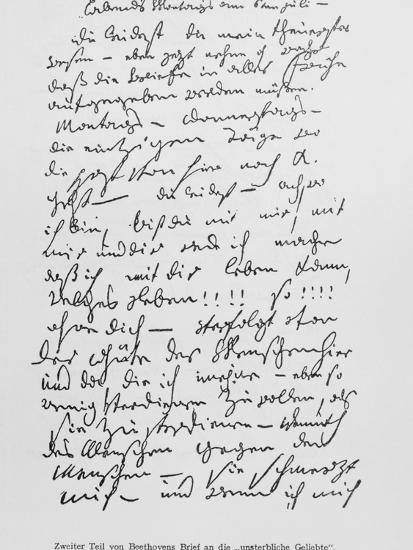 Abends Montags am 6ten juli –
Du leidest du mein theuerstes
wesen – eben jezt nehme ich wahr
daß die Briefe in aller Frühe
aufgegeben werden müßen.
Montags – Donnerstags –
die einzigen Täge wo
die Post von hier nach K.
geht – du leidest – ach wo
ich bin, bist du mit mir, mit
mir und dir rede ich mache
daß ich mit dir leben kann,
welches leben!!!! so!!!!
ohne dich – verfolgt von
der Güte der Menschen hier
und da, die ich meine – eben so
wenig verdienen zu wollen, als
sie zu verdienen – Demuth
des Menschen gegen den
Menschen – sie schmerzt
mich – und wenn ich mich
Zweiter Teil von Beethovens Brief an die „unsterbliche Geliebte".